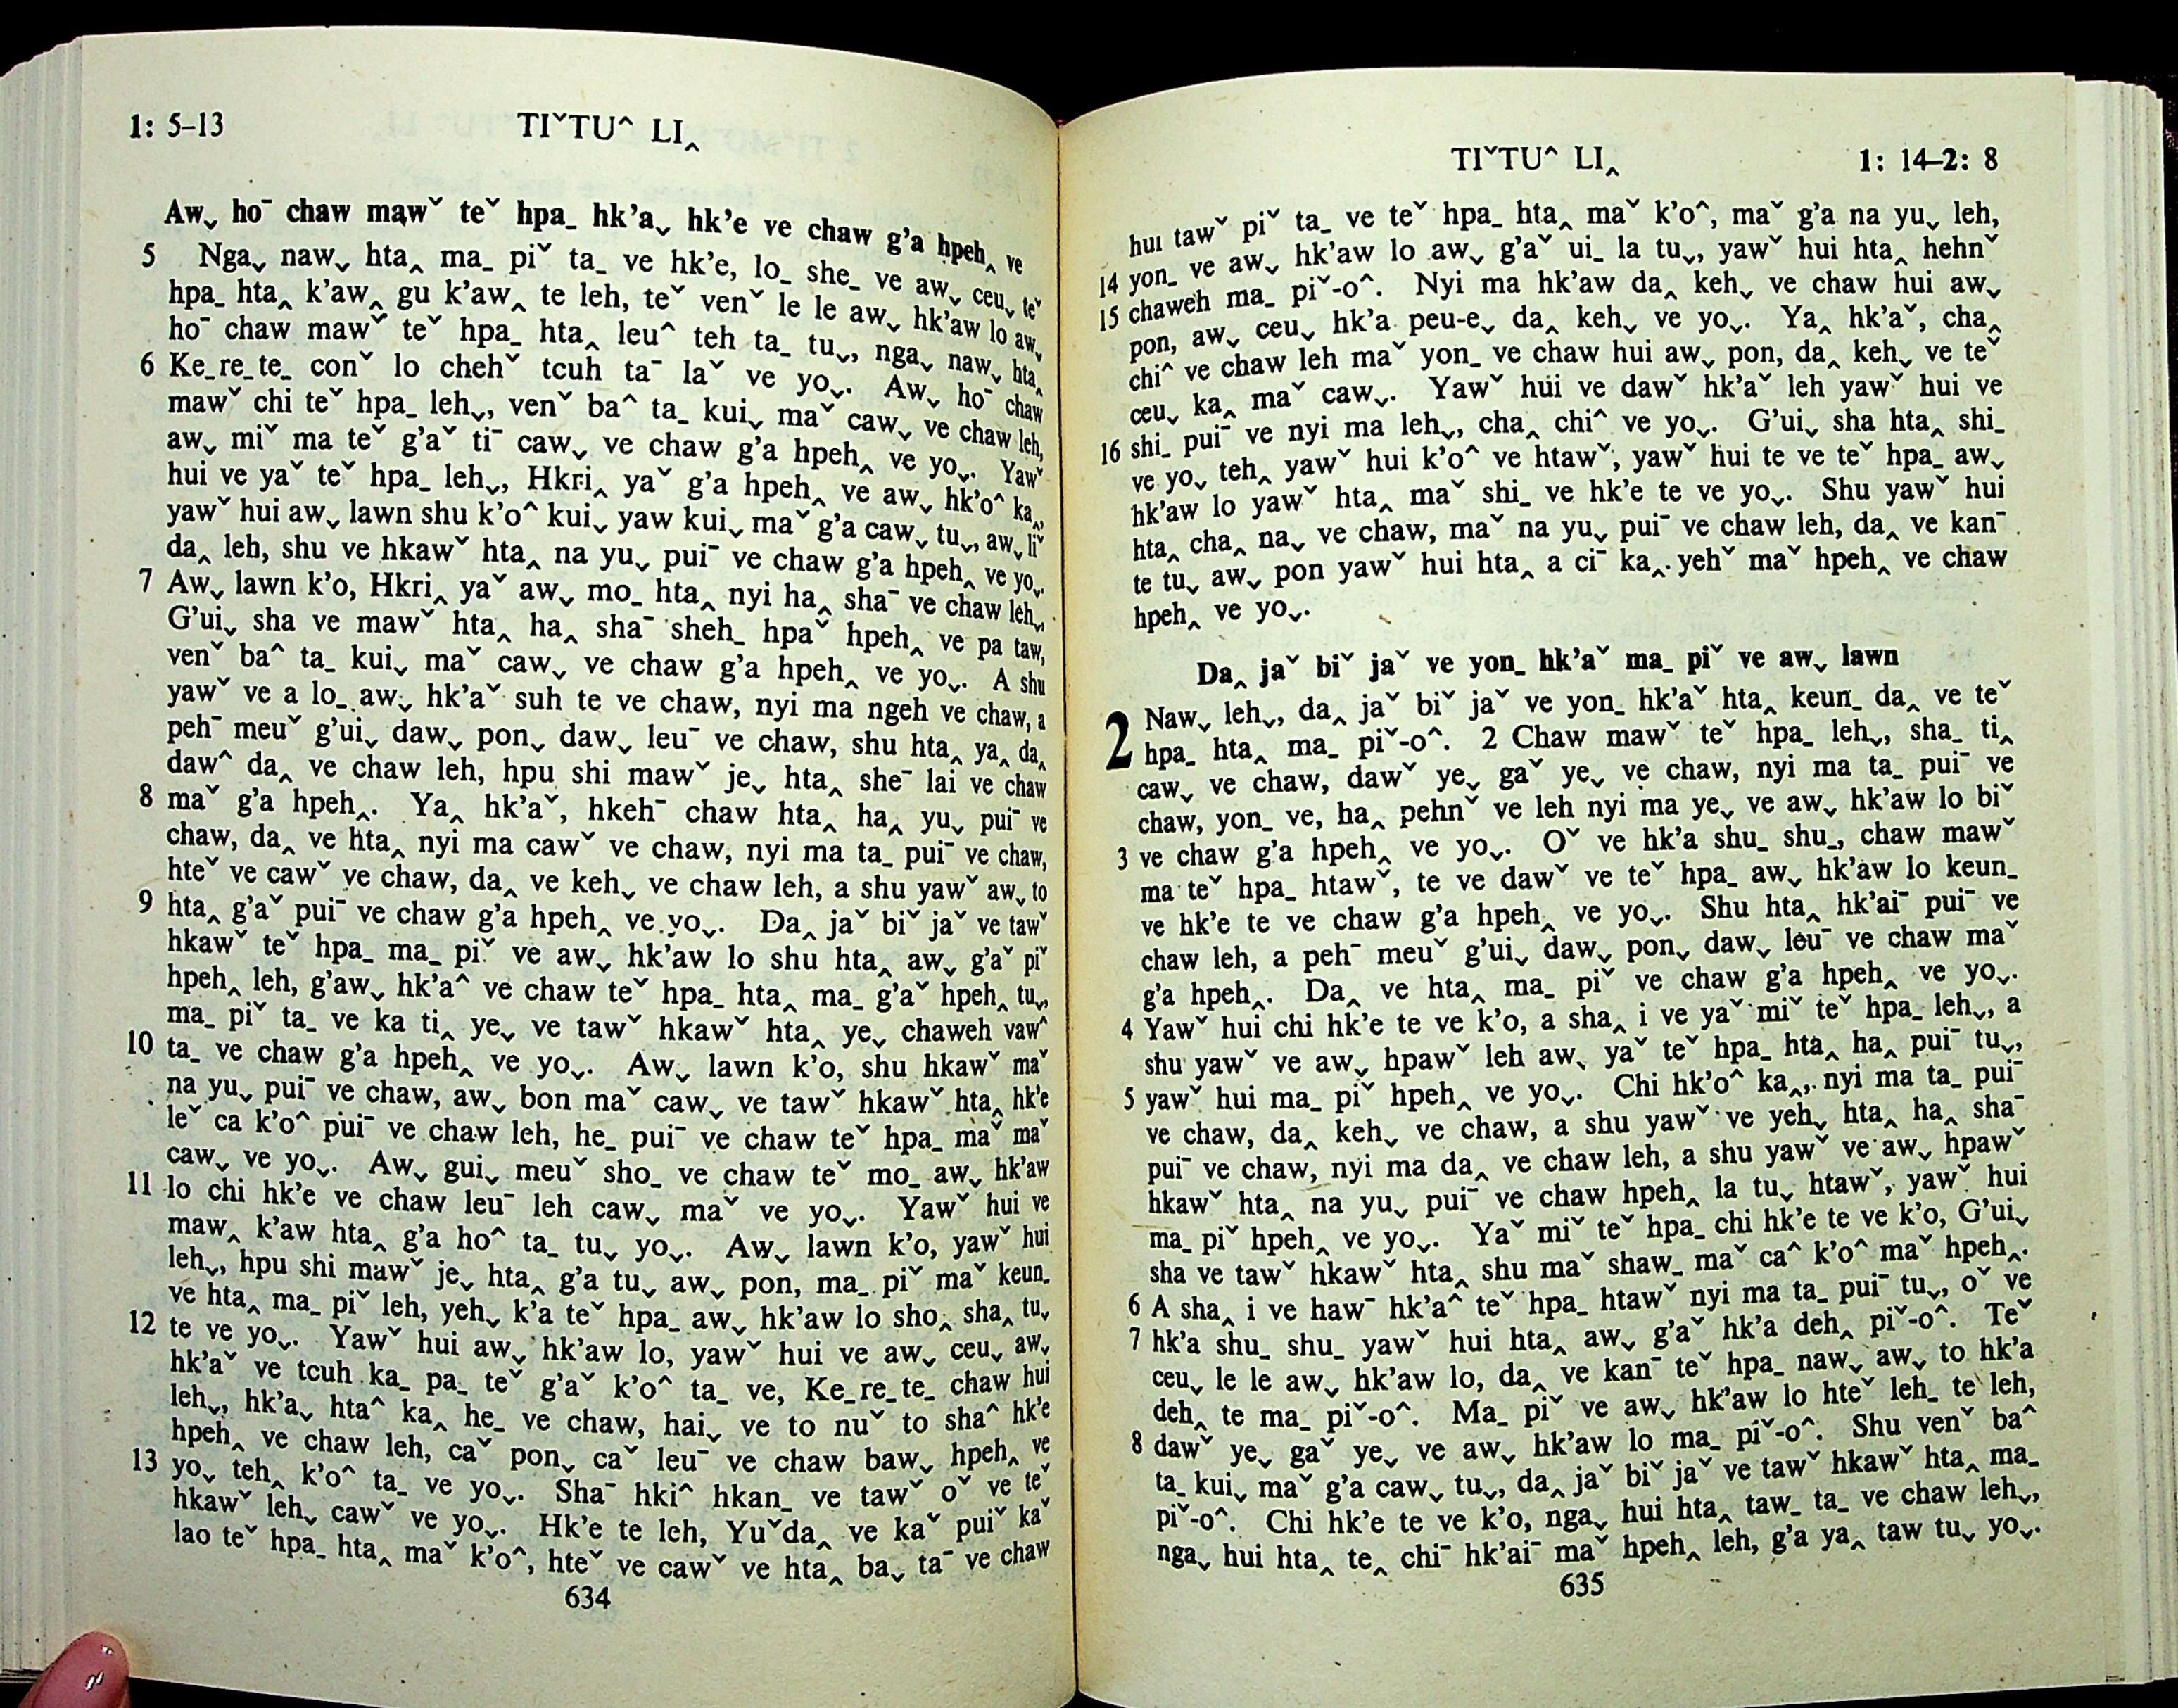 1: 5–13 TIˇTUˆ LI‸
Aw⌄ ho¯ chaw mawˇ teˇ hpa_ hk’a⌄ hk’e ve chaw g’a hpeh‸ ve
5 Nga⌄ naw⌄ hta‸ ma_ piˇ ta_ ve hk’e, lo_ she_ ve aw⌄ ceu⌄ teˇ
hpa_ hta‸ k’aw‸ gu k’aw‸ te leh, teˇ venˇ le le aw⌄ hk’aw lo aw⌄
ho¯ chaw mawˇ teˇ hpa_ hta‸ leuˆ teh ta_ tu⌄, nga⌄ naw⌄ hta‸
6 Ke_re_te_ conˇ lo chehˇ tcuh ta¯ laˇ ve yo⌄. Aw⌄ ho¯ chaw
mawˇ chi teˇ hpa_ leh⌄, venˇ baˆ ta_ kui⌄ maˇ caw⌄ ve chaw leh,
aw⌄ miˇ ma teˇ g’aˇ ti¯ caw⌄ ve chaw g’a hpeh‸ ve yo⌄. Yawˇ
hui ve yaˇ teˇ hpa_ leh⌄, Hkri‸ yaˇ g’a hpeh‸ ve aw⌄ hk’oˆ ka‸,
yawˇ hui aw⌄ lawn shu k’oˆ kui⌄ yaw kui⌄ maˇ g’a caw⌄ tu⌄, aw⌄ liˇ
da‸ leh, shu ve hkawˇ hta‸ na yu⌄ pui¯ ve chaw g’a hpeh‸ ve yo⌄.
7 Aw⌄ lawn k’o, Hkri‸ yaˇ aw⌄ mo_ hta‸ nyi ha‸ sha¯ ve chaw leh⌄,
G’ui⌄ sha ve mawˇ hta‸ ha‸ sha¯ sheh_ hpaˇ hpeh‸ ve pa taw,
venˇ baˆ ta_ kui⌄ maˇ caw⌄ ve chaw g’a hpeh‸ ve yo⌄. A shu
yawˇ ve a lo_ aw⌄ hk’aˇ suh te ve chaw, nyi ma ngeh ve chaw, a
peh¯ meuˇ g’ui⌄ daw⌄ pon⌄ daw⌄ leu¯ ve chaw, shu hta‸ ya‸ da‸
dawˆ da‸ ve chaw leh, hpu shi mawˇ je⌄ hta‸ she¯ lai ve chaw
8 maˇ g’a hpeh‸. Ya‸ hk’aˇ, hkeh¯ chaw hta‸ ha‸ yu⌄ pui¯ ve
chaw, da‸ ve hta‸ nyi ma cawˇ ve chaw, nyi ma ta_ pui¯ ve chaw,
hteˇ ve cawˇ ve chaw, da‸ ve keh⌄ ve chaw leh, a shu yawˇ aw⌄ to
9 hta‸ g’aˇ pui¯ ve chaw g’a hpeh‸ ve yo⌄. Da‸ jaˇ biˇ jaˇ ve tawˇ
hkawˇ teˇ hpa_ ma_ piˇ ve aw⌄ hk’aw lo shu hta‸ aw⌄ g’aˇ piˇ
hpeh‸ leh, g’aw⌄ hk’aˆ ve chaw teˇ hpa_ hta‸ ma_ g’aˇ hpeh‸ tu⌄,
ma_ piˇ ta_ ve ka ti‸ ye⌄ ve tawˇ hkawˇ hta‸ ye⌄ chaweh vawˆ
10 ta_ ve chaw g’a hpeh‸ ve yo⌄. Aw⌄ lawn k’o, shu hkawˇ maˇ
na yu⌄ pui¯ ve chaw, aw⌄ bon maˇ caw⌄ ve tawˇ hkawˇ hta‸ hk’e
leˇ ca k’oˆ pui¯ ve chaw leh, he_ pui¯ ve chaw teˇ hpa_ maˇ maˇ
caw⌄ ve yo⌄. Aw⌄ gui⌄ meuˇ sho_ ve chaw teˇ mo_ aw⌄ hk’aw
11 lo chi hk’e ve chaw leu¯ leh caw⌄ maˇ ve yo⌄. Yawˇ hui ve
maw‸ k’aw hta‸ g’a hoˆ ta_ tu⌄ yo⌄. Aw⌄ lawn k’o, yawˇ hui
leh⌄, hpu shi mawˇ je⌄ hta‸ g’a tu⌄ aw⌄ pon, ma_ piˇ maˇ keun_
ve hta‸ ma_ piˇ leh, yeh⌄ k’a teˇ hpa_ aw⌄ hk’aw lo sho‸ sha‸ tu⌄
12 te ve yo⌄. Yawˇ hui aw⌄ hk’aw lo, yawˇ hui ve aw⌄ ceu⌄ aw⌄
hk’aˇ ve tcuh ka_ pa_ teˇ g’aˇ k’oˆ ta_ ve, Ke_re_te_ chaw hui
leh⌄, hk’a⌄ htaˆ ka‸ he_ ve chaw, hai⌄ ve to nuˇ to shaˆ hk’e
hpeh‸ ve chaw leh, caˇ pon⌄ caˇ leu¯ ve chaw baw⌄ hpeh‸ ve
13 yo⌄ teh‸ k’oˆ ta_ ve yo⌄. Sha¯ hkiˆ hkan_ ve tawˇ oˇ ve teˇ
hkawˇ leh⌄ cawˇ ve yo⌄. Hk’e te leh, Yuˇda‸ ve kaˇ puiˇ kaˇ
lao teˇ hpa_ hta‸ maˇ k’oˆ, hteˇ ve cawˇ ve hta‸ ba⌄ ta¯ ve chaw
634
TIˇTUˆ LI‸ 1: 14–2: 8
hui tawˇ piˇ ta_ ve teˇ hpa_ hta‸ maˇ k’oˆ, maˇ g’a na yu⌄ leh,
yon_ ve aw⌄ hk’aw lo aw⌄ g’aˇ ui_ la tu⌄, yawˇ hui hta‸ hehnˇ
14 chaweh ma_ piˇ-oˆ. Nyi ma hk’aw da‸ keh⌄ ve chaw hui aw⌄
15 pon, aw⌄ ceu⌄ hk’a peu-e⌄ da‸ keh⌄ ve yo⌄. Ya‸ hk’aˇ, cha‸
chiˆ ve chaw leh maˇ yon_ ve chaw hui aw⌄ pon, da‸ keh⌄ ve teˇ
ceu⌄ ka‸ maˇ caw⌄. Yawˇ hui ve dawˇ hk’aˇ leh yawˇ hui ve
shi_ pui¯ ve nyi ma leh⌄, cha‸ chiˆ ve yo⌄. G’ui⌄ sha hta‸ shi_
16 ve yo⌄ teh‸ yawˇ hui k’oˆ ve htawˇ, yawˇ hui te ve teˇ hpa_ aw⌄
hk’aw lo yawˇ hta‸ maˇ shi_ ve hk’e te ve yo⌄. Shu yawˇ hui
hta‸ cha‸ na⌄ ve chaw, maˇ na yu⌄ pui¯ ve chaw leh, da‸ ve kan¯
te tu⌄ aw⌄ pon yawˇ hui hta‸ a ci¯ ka‸ yehˇ maˇ hpeh‸ ve chaw
hpeh‸ ve yo⌄.
Da‸ jaˇ biˇ jaˇ ve yon_ hk’aˇ ma_ piˇ ve aw⌄ lawn
2 Naw⌄ leh⌄, da‸ jaˇ biˇ jaˇ ve yon_ hk’aˇ hta‸ keun_ da‸ ve teˇ
hpa_ hta‸ ma_ piˇ-oˆ. 2 Chaw mawˇ teˇ hpa_ leh⌄, sha_ ti‸
caw⌄ ve chaw, dawˇ ye⌄ gaˇ ye⌄ ve chaw, nyi ma ta_ pui¯ ve
chaw, yon_ ve, ha‸ pehnˇ ve leh nyi ma ye⌄ ve aw⌄ hk’aw lo biˇ
3 ve chaw g’a hpeh‸ ve yo⌄. Oˇ ve hk’a shu_ shu_, chaw mawˇ
ma teˇ hpa_ htawˇ, te ve dawˇ ve teˇ hpa_ aw⌄ hk’aw lo keun_
ve hk’e te ve chaw g’a hpeh‸ ve yo⌄. Shu hta‸ hk’ai¯ pui¯ ve
chaw leh, a peh¯ meuˇ g’ui⌄ daw⌄ pon⌄ daw⌄ leu¯ ve chaw maˇ
g’a hpeh‸. Da‸ ve hta‸ ma_ piˇ ve chaw g’a hpeh‸ ve yo⌄.
4 Yawˇ hui chi hk’e te ve k’o, a sha‸ i ve yaˇ miˇ teˇ hpa_ leh⌄, a
shu yawˇ ve aw⌄ hpawˇ leh aw⌄ yaˇ teˇ hpa_ hta‸ ha‸ pui¯ tu⌄,
5 yawˇ hui ma_ piˇ hpeh‸ ve yo⌄. Chi hk’oˆ ka‸, nyi ma ta_ pui¯
ve chaw, da‸ keh⌄ ve chaw, a shu yawˇ ve yeh⌄ hta‸ ha‸ sha¯
pui¯ ve chaw, nyi ma da‸ ve chaw leh, a shu yawˇ ve aw⌄ hpawˇ
hkawˇ hta‸ na yu⌄ pui¯ ve chaw hpeh‸ la tu⌄ htawˇ, yawˇ hui
ma_ piˇ hpeh‸ ve yo⌄. Yaˇ miˇ teˇ hpa_ chi hk’e te ve k’o, G’ui⌄
sha ve tawˇ hkawˇ hta‸ shu maˇ shaw_ maˇ caˆ k’oˆ maˇ hpeh‸.
6 A sha‸ i ve haw¯ hk’aˆ teˇ hpa_ htawˇ nyi ma ta_ pui¯ tu⌄, oˇ ve
7 hk’a shu_ shu_ yawˇ hui hta‸ aw⌄ g’aˇ hk’a deh‸ piˇ-oˆ. Teˇ
ceu⌄ le le aw⌄ hk’aw lo, da‸ ve kan¯ teˇ hpa_ naw⌄ aw⌄ to hk’a
deh‸ te ma_ piˇ-oˆ. Ma_ piˇ ve aw⌄ hk’aw lo hteˇ leh_ te leh,
8 dawˇ ye⌄ gaˇ ye⌄ ve aw⌄ hk’aw lo ma_ piˇ-oˆ. Shu venˇ baˆ
ta_ kui⌄ maˇ g’a caw⌄ tu⌄, da‸ jaˇ biˇ jaˇ ve tawˇ hkawˇ hta‸ ma_
piˇ-oˆ. Chi hk’e te ve k’o, nga⌄ hui hta‸ taw_ ta_ ve chaw leh⌄,
nga⌄ hui hta‸ te‸ chi¯ hk’ai¯ maˇ hpeh‸ leh, g’a ya‸ taw tu⌄ yo⌄.
635